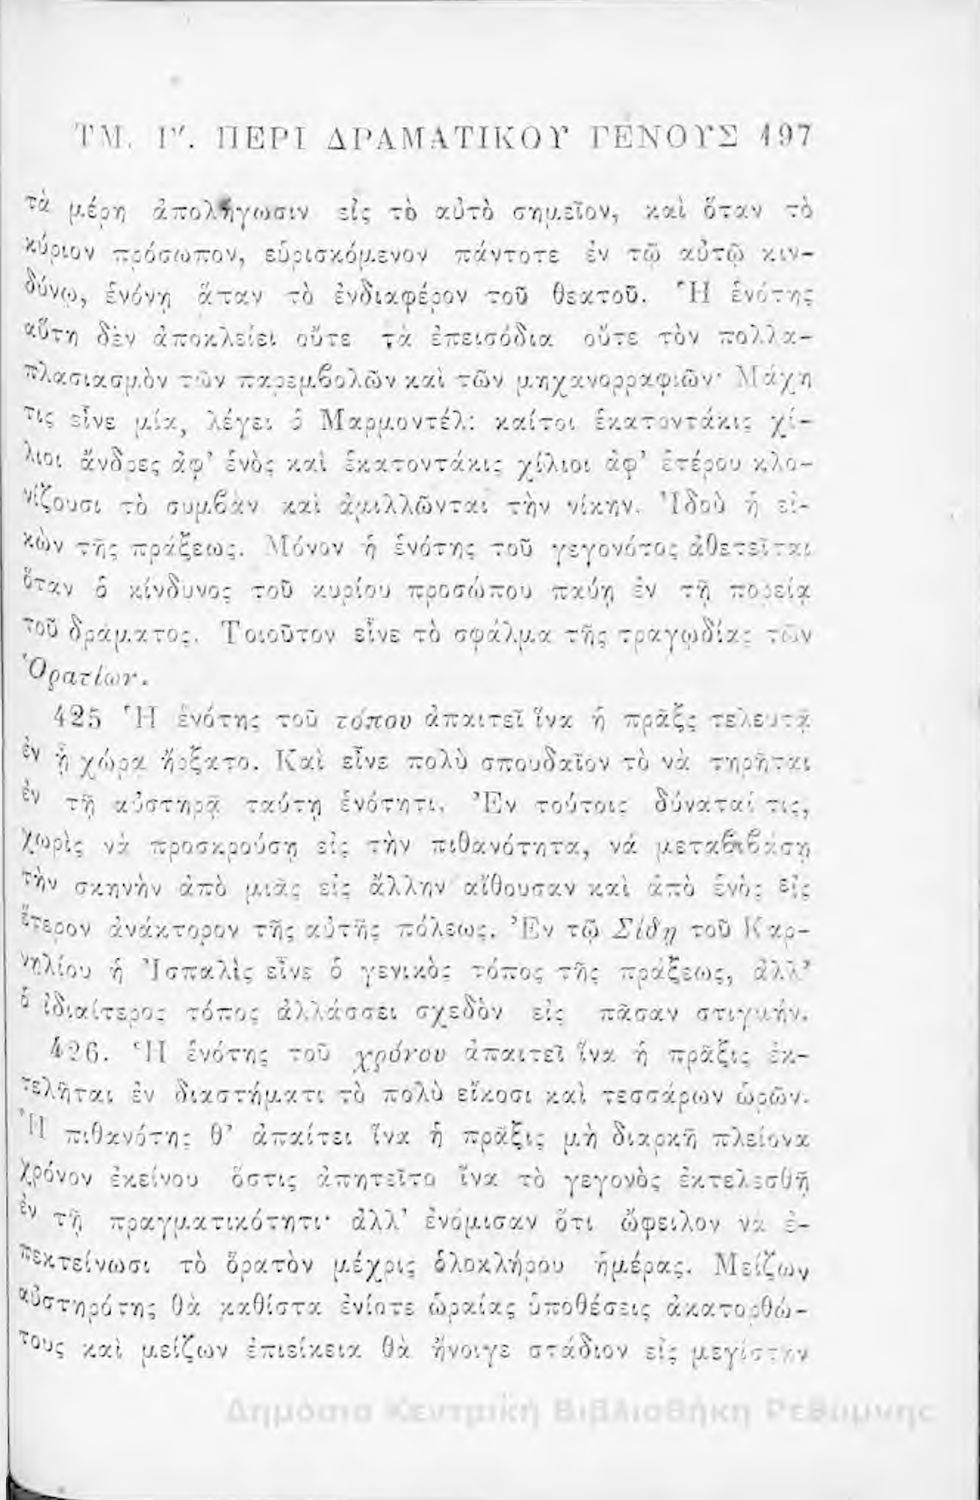 ΤΜ. Γ΄. ΠΕΡΙ ΔΡΑΜΑΤΙΚΟΥ ΓΕΝΟΥΣ 197
τὰ μέρη ἀπολήγωσιν εἰς τὸ αὐτὸ σημεῖον, καὶ ὅταν τὸ
κύριον πρόσωπον, εὑρισκόμενον πάντοτε ἐν τῷ αὐτῷ κιν-
δύνῳ, ἑνόνῃ ἅπαν τὸ ἐνδιαφέρον τοῦ θεατοῦ. Ἡ ἑνότης
αὕτη δὲν ἀποκλείει οὔτε τὰ ἐπεισόδια οὔτε τὸν πολλα-
πλασιασμὸν τῶν παρεμβολῶν καὶ τῶν μηχανορραφιῶν· Μάχη
τις εἶνε μία, λέγει ὁ Μαρμοντέλ: καίτοι ἑκατοντάκις χί-
λιοι ἄνδρες ἀφ’ ἑνὸς καὶ ἑκατοντάκις χίλιοι ἀφ’ ἑτέρου κλο-
νίζουσι τὸ συμβὰν καὶ ἁμιλλῶνται τὴν νίκην. Ἰδοὺ ἡ εἰ-
κὼν τῆς πράξεως. Μόνον ἡ ἑνότης τοῦ γεγονότος ἀθετεῖται
ὅταν ὁ κίνδυνος τοῦ κυρίου προσώπου παύῃ ἐν τῇ πορείᾳ
τοῦ δράματος. Τοιοῦτον εἶνε τὸ σφάλμα τῆς τραγῳδίας τῶν
Ὁρατίων.
425 Ἡ ἑνότης τοῦ τόπου ἀπαιτεῖ ἵνα ἡ πρᾶξς τελευτᾷ
ἐν ᾗ χώρᾳ ἤρξατο. Καὶ εἶνε πολὺ σπουδαῖον τὸ νὰ τηρῆται
ἐν τῇ αὐστηρᾷ ταύτῃ ἑνότητι. Ἐν τούτοις δύναταί τις,
χωρὶς νὰ προσκρούσῃ εἰς τὴν πιθανότητα, νά μεταβιβάσῃ
τὴν σκηνὴν ἀπὸ μιᾶς εἰς ἄλλην αἴθουσαν καὶ ἀπὸ ἑνὸς εἰς
ἕτερον ἀνάκτορον τῆς αὐτῆς πόλεως. Ἐν τῷ Σίδῃ τοῦ Καρ-
νηλίου ἡ Ἱσπαλὶς εἶνε ὁ γενικὸς τόπος τῆς πράξεως, ἀλλ’
ὁ ἰδιαίτερος τόπος ἀλλάσσει σχεδὸν εἰς πᾶσαν στιγμήν.
426. Ἡ ἑνότης τοῦ χρόνου ἀπαιτεῖ ἵνα ἡ πρᾶξις ἐκ-
τελῆται ἐν διαστήματι τὸ πολὺ εἴκοσι καὶ τεσσάρων ὡρῶν.
Ἡ πιθανότης θ’ ἀπαίτει ἵνα ἡ πρᾶξις μὴ διαρκῇ πλείονα
χρόνον ἐκείνου ὅστις ἀπητεῖτο ἵνα τὸ γεγονὸς ἐκτελεσθῇ
ἐν τῇ πραγματικότητι· ἀλλ’ ἐνόμισαν ὅτι ὤφειλον νὰ ἐ-
πεκτείνωσι τὸ ὁρατὸν μέχρις ὁλοκλήρου ἡμέρας. Μείζων
αὐστηρότης θὰ καθίστα ἐνίοτε ὡραίας ὑποθέσεις ἀκατορθώ-
τους καὶ μείζων ἐπιείκεια θὰ ἤνοιγε στάδιον εἰς μεγίσταν
Δημόσια Κεντρική Βιβλιοθήκη Ρεθύμνης